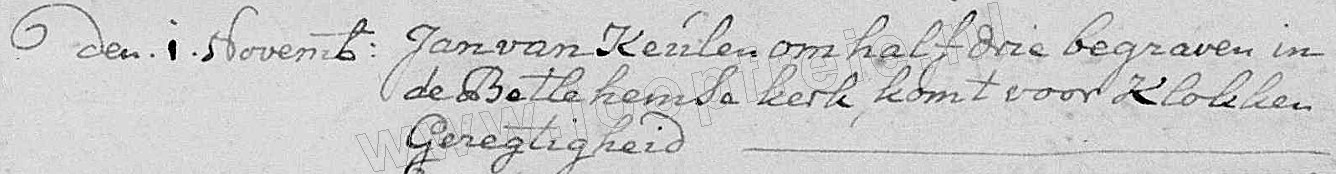 den. 1. Novemb: Jan van Keulen om half drie begraven in
de Betlehemse kerk, komt voor Klokken
Geregtigheid